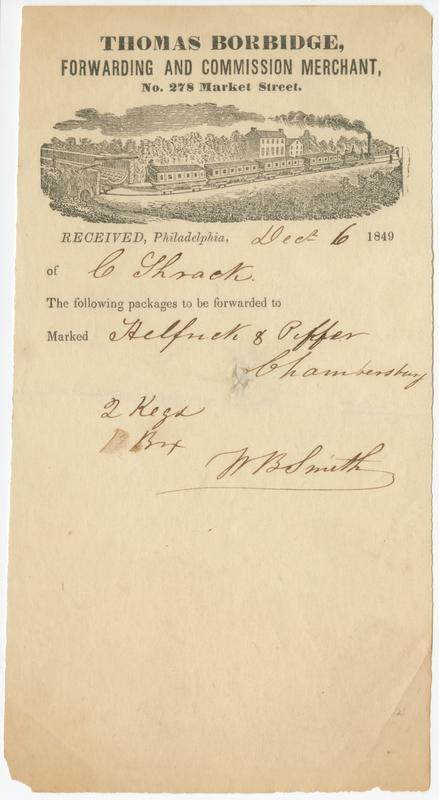 THOMAS BORBIDGE,
FORWARDING AND COMMISSION MERCHANT,
No. 278 Market Street.
RECEIVED, Philadelphia, Dect 6 1849
of C Shrack.
The following packages to be forwarded to
Marked Helfrick & Piffer
Chambersburg
2 Kegs
Box
W B Smith